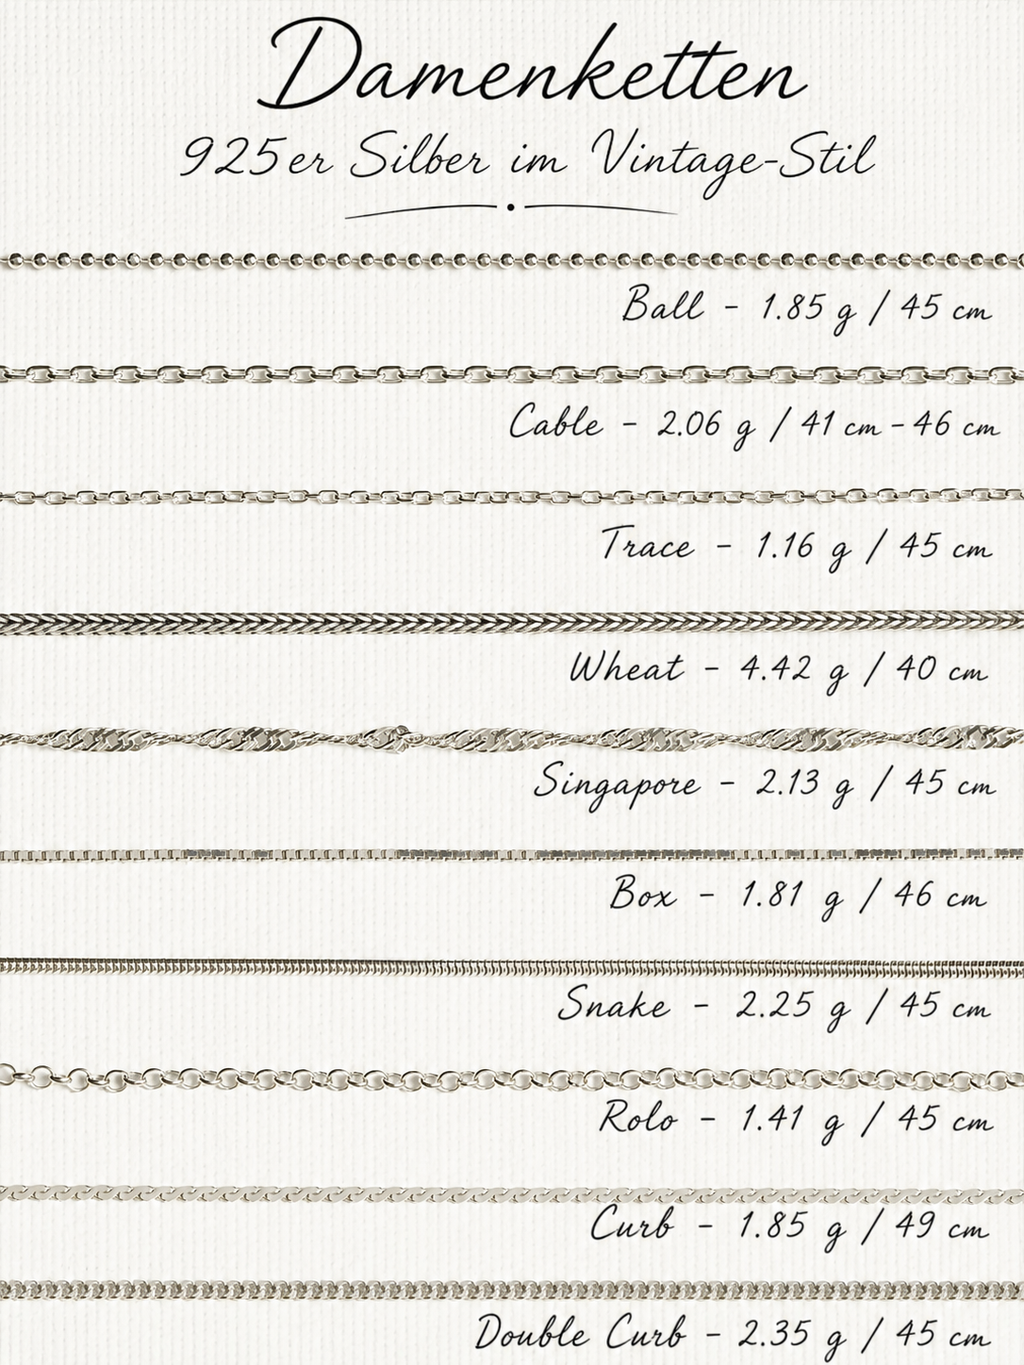 Damenketten
925er Silber im Vintage-Stil
Ball - 1.85 g / 45 cm
Cable - 2.06 g / 41 cm - 46 cm
Trace - 1.16 g / 45 cm
Wheat - 4.42 g / 40 cm
Singapore - 2.13 g / 45 cm
Box - 1.81 g / 46 cm
Snake - 2.25 g / 45 cm
Rolo - 1.41 g / 45 cm
Curb - 1.85 g / 49 cm
Double Curb - 2.35 g / 45 cm